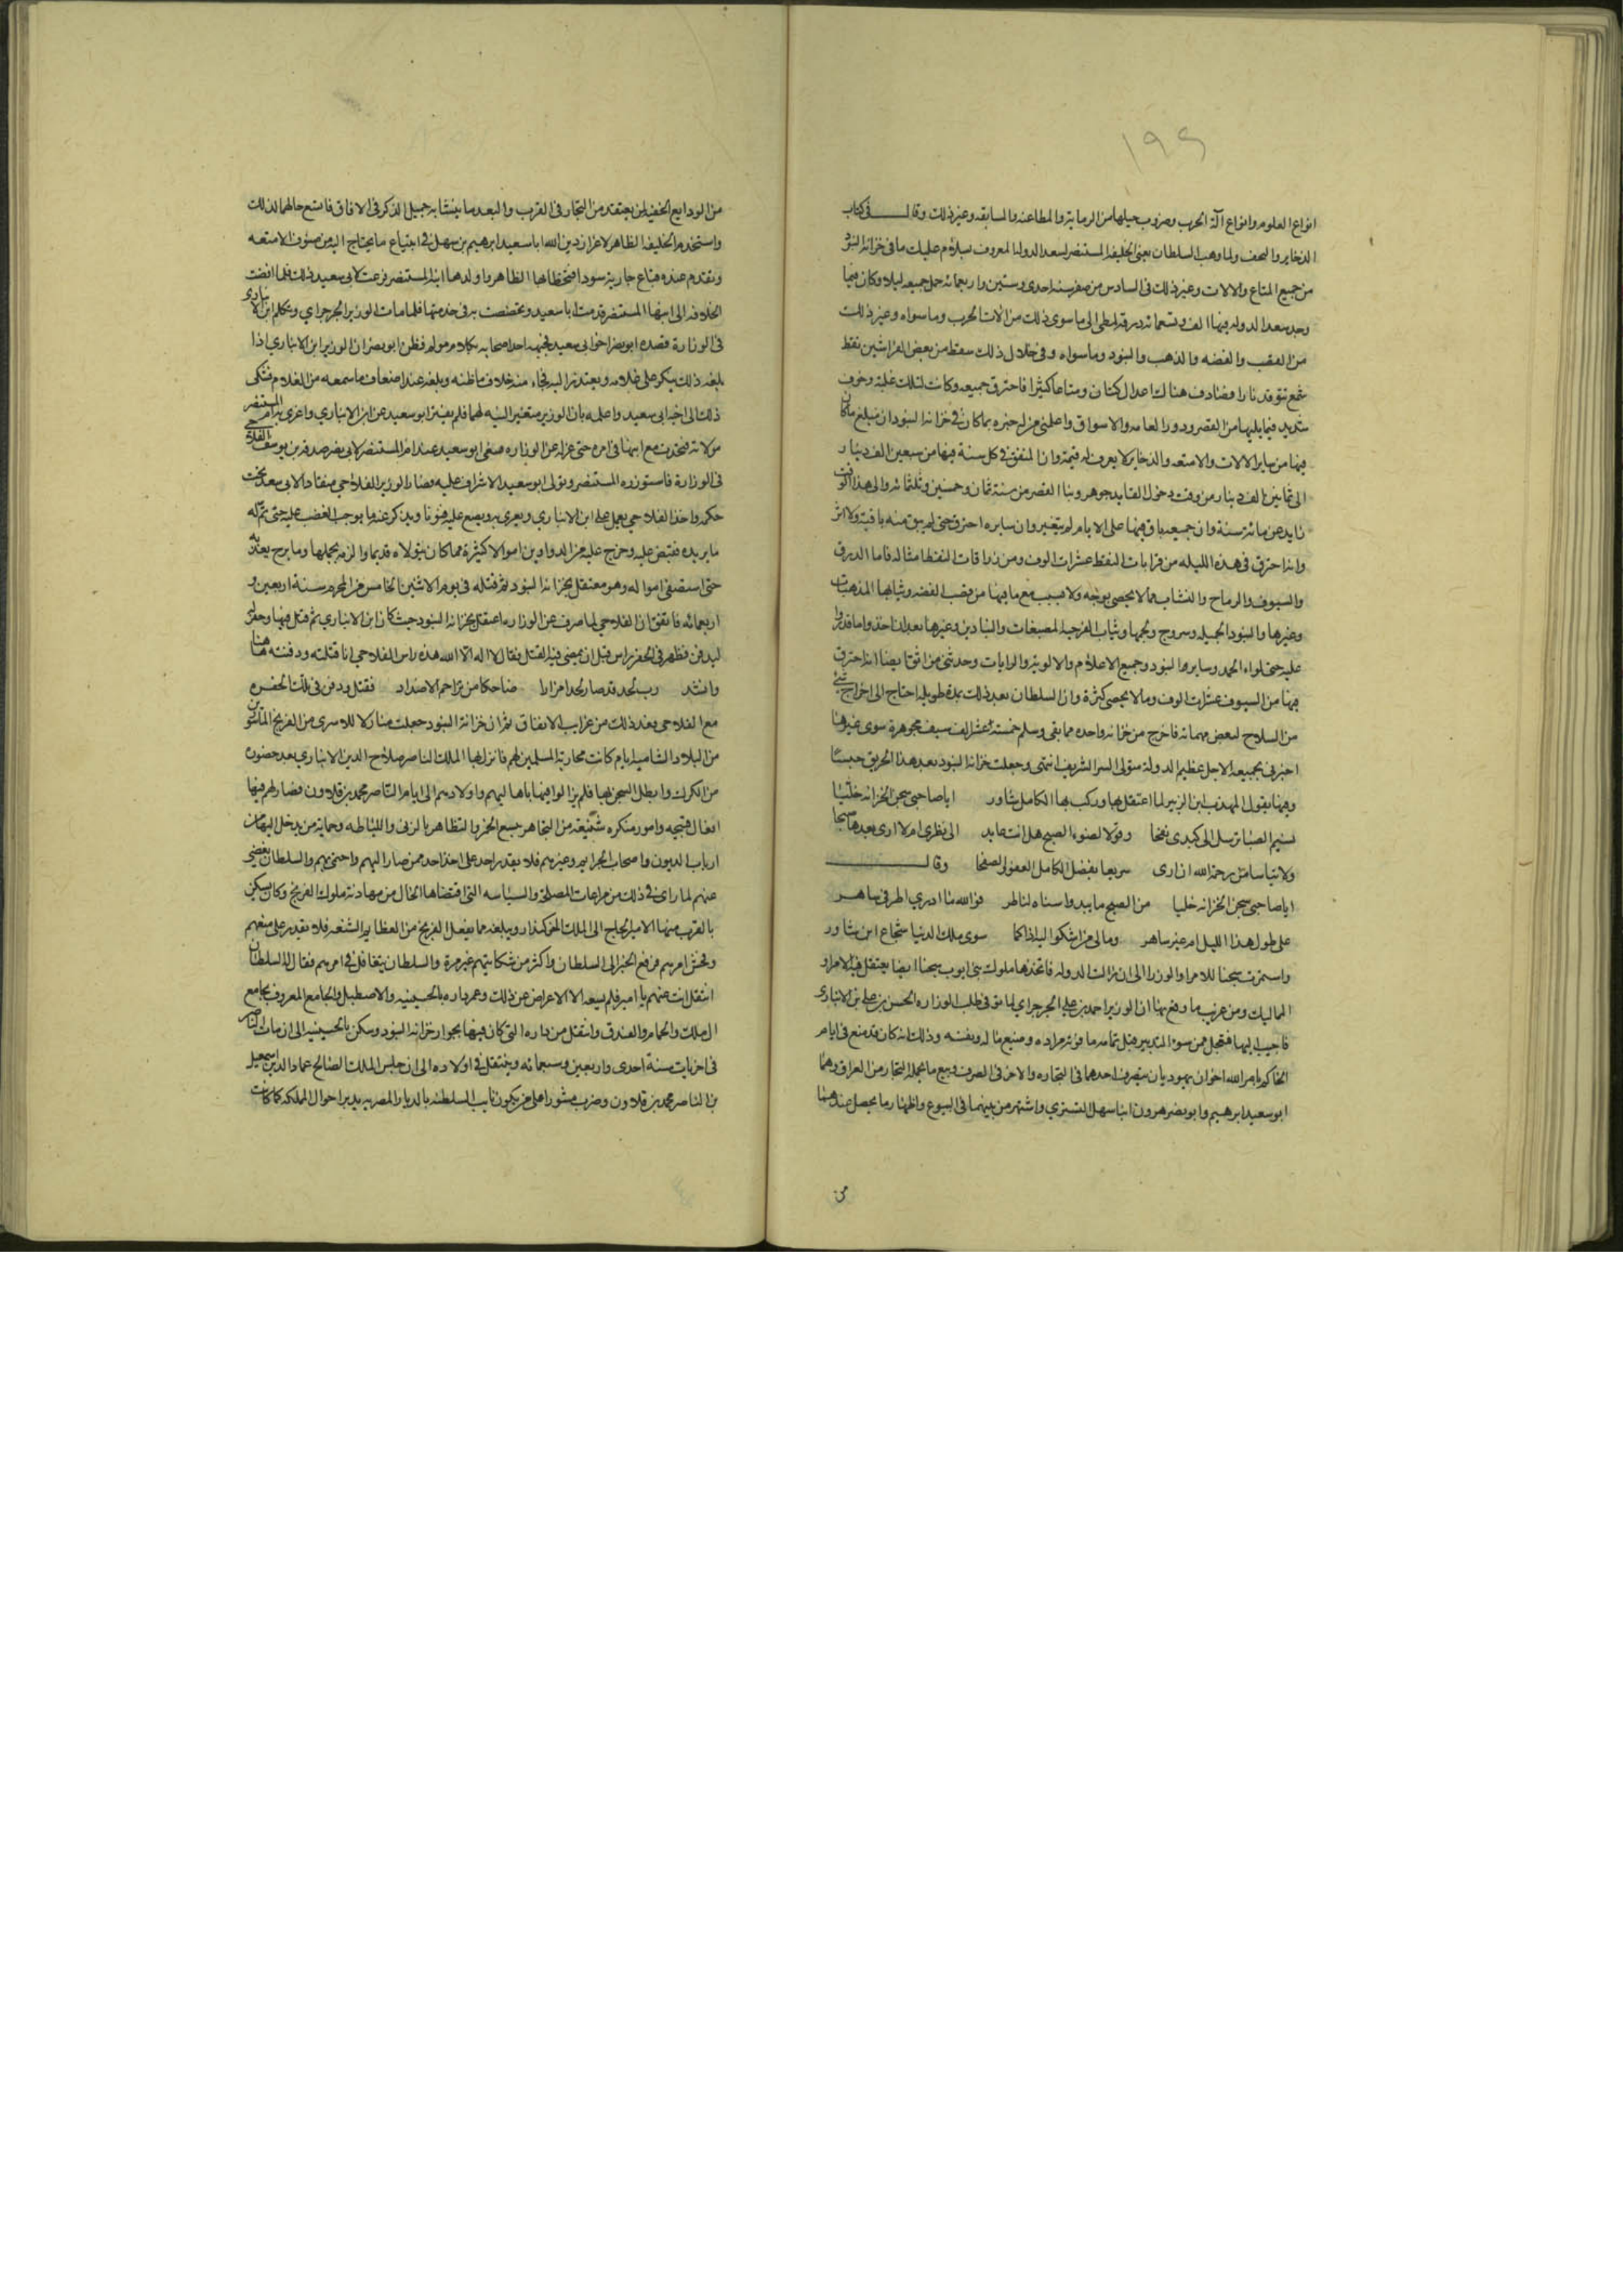 ١٩٩
انواع العلوم وانواع آلة الحرب وضروب حيلها من الرماية والمطاعنه والمسابقه وغير ذلك وقال في كتاب
الذخاير والتحف ولما وهب السلطان يعني الخليفه المستنصر لسعد الدوله المعروف بسلام عليك ما في خزانة البنود
من جميع المتاع والالات وغير ذلك في السادس من صفر سنه احدى وستين واربعمائه حمل جميعه ليلا وكان فيما
وجد سعد الدوله فيها الف وتسعمائه درقه لمطي الى ما سوى ذلك من الات الحرب وما سواه وغير ذلك
من القصب والفضه والذهب والبنود وما سواه وفي خلال ذلك سقط من بعض الفراشين نقط
شمع تتوقد نارا فصادف هناك اعدال كتان ومتاعا كثيرا فاحترق جميعه وكانت لتلك غلبة وخوف
شديد فيما يليها من القصر ودور العامه والاسواق واعلمني من له خبره بما كان في خزانة البنود ان مبلغ ما كان
فيها من ساير الالات والامتعه والذخاير لا يعرف له قيمة وان المنفق في كل سنة فيها من سبعين الف دينار
الى ثمانين الف دينار من وقت دخول القايد جوهر وبنا القصر من سنة ثمان وخمسين وثلثمائه والى هذا الوقت
زايد عن مائة سنة وان جميعه باق فيها على الايام لم يتغير وان سايره احترق حتى لم يبق منه باقية ولا اثر
وانه احترق في هذه الليله من قرابات النفط عشرات الوف ومن زراقات النفط امثاله فاما الدرق
والسيوف والرماح والنشاب فما لا يحصى بوجه ولا سبب مع ما فيها من قصب الفضه وثيابها المذهبات
وغيرها والبنود الجميله وسروج ولجمها وثياب الفرحيه المصبغات والبنادين وغيرها بعد ان اخذوا ما قدروا
عليه حتى لواء الحمد وساير البنود وجميع الاعلام والالويه والرايات وحدثني من اثق به ايضا انه احترق
فيها من السيوف عشرات الوف وما لا يحصى كثرة وان السلطان بعد ذلك بمدة طويله احتاج الى اخراج شئ
من السلاح لبعض مهماته فاخرج من خزانه واحده مما بقي وسلم خمسة عشر الف سيف مجوهرة سوى غيرها
اخبرني بجميعه الاجل عظيم الدولة متولى الستر الشريف انتهى وجعلت خزانة البنود بعد هذا الحريق حبسا
وفيها يقول المهذب ابن الزبير لما اعتقل بها وركب بها الكامل شاور ايا صاحبي سجن الخزانة خليا
نسيم الصبا ترسل الى كبدى نفحا وقولا لضوء الصبح هل انت عايد الى نظرى ام لا ارى بعدها صبحا
ولا تيأسا من رحمة الله ان ارى سريعا بفضل الكامل العفو والصفحا وقال
ايا صاحبي سجن الخزانه خليا من الصبح ما يبدوا سناه لناظر فوالله ما ادري اطرفي ساهر
على طول هذا الليل ام غير ساهر ومالي من اشكوا اليه اذاكما سوى ملك الدنيا شجاع ابن شاور
واستمرت سجنا للامرا والوزرا الى ان زالت الدوله فاتخذها ملوك بني ايوب سجنا ايضا يعتقل فيه الامرا و
المماليك ومن غريب ما وقع بها ان الوزير احمد بن علي الجرجراي لما توفي طلب الوزاره الحسن بن علي بن الانباري
فاجيب اليها فتعجل من سوء التدبير قبل تمامه ما فوت مراده وضيع ماله ونفسه وذلك انه كان قد نبغ في ايام
الحاكم بامر الله اخوان يهوديان يتصرف احدهما في التجاره والاخر في الصرف وبيع ما يحمله التجار من العراق وهما
ابو سعيد ابرهيم وابو نصر هرون ابنا سهل التستري واشتهر من بينهما في البيوع واظهار ما يحصل عندهما
من
من الودايع الخفيه لمن يفتقد من التجار في القرب والبعد ما ينشا به جميل الذكر في الافاق فاتسع حالهما لذلك
واستخدم الخليفه الظاهر لاعزاز دين الله ابا سعيد ابرهيم بن سهل في ابتياع ما يحتاج اليه من صنوف الامتعه
وتقدم عنده فباع جارية سودا فتحظا بها الظاهر واولدها ابنه المستنصر فرعت لابي سعيد ذلك فلما افضت
الخلافه الى ابنها المستنصر قدمت ابا سعيد وتخصصت به في خدمتها فلما مات الوزير الجرجراي وتكلم ابن الانباري
في الوزارة قصده ابو نصر اخو ابي سعيد فجبهه احد اصحابه بكلام مولم فظن ابو نصر ان الوزير ابن الانباري اذا
بلغه ذلك ينكر على غلامه ويعتذر اليه فجاء منه خلاف ما ظنه وبلغه عنه اضعاف ما سمعه من الغلام فشكى
ذلك الى اخيه ابي سعيد واعلمه بان الوزير متغير النيه لهما فلم يفتر ابو سعيد عن ابن الانباري واغرى به ام المستنصر
مولاته فتحدثت مع ابنها في امره حتى عزله عن الوزاره فسعى ابو سعيد عند ام المستنصر لابي نصر صدقه بن يوسف الفلاحي
في الوزارة فاستوزره المستنصر وتولى ابو سعيد الاشراف عليه وصار الوزير الفلاحي منقادا لابي سعيد تحت
حكمه واخذ الفلاحي يعمل على ابن الانباري ويغرى به ويصنع عليه ديونا ويذكر عنه ما يوجب الغضب عليه حتى تم له
ما يريده فقبض عليه وخرج عليه من الدواوين اموالا كثيرة مما كان يتولاه قديما والزمه بحملها وما برح يعذبه
حتى استصفى امواله وهو معتقل بخزانة البنود ثم قتله في يوم الاثنين الخامس من المحرم سنة اربعين و
اربعمائه فاتفق ان الفلاحي لما صرف عن الوزاره اعتقل بخزانة البنود حيث كان ابن الانباري ثم قتل فيها وحفر له
ليدفن فظهر في الحفر راس قبل ان يمضي فيه القتل فقال لا اله الا الله هذه راس الفلاحي انا قتلته ودفنته هنا
وانشد رب لحد قد صار لحدا مرارا ضاحكا من تزاحم الاضداد فقتل ودفن في تلك الحفره
مع الفلاحي فعد ذلك من غرايب الاتفاق ثم ان خزانة البنود جعلت منازلا للاسرى من الفرنج الماسورين
من البلاد الشاميه ايام كانت محاربة المسلمين لهم فانزل بها الملك الناصر صلاح الدين الانباري بعد حضوره
من الكرك وابطل السجن بها فلم يزالوا فيها باهاليهم واولادهم الى ايام الناصر محمد بن قلاوون فصار لهم فيها
افعال قبيحه وامور منكره شنيعة من التجاهر ببيع الخمر والتظاهر بالزنى واللياطه وحماية من يدخل اليها من
ارباب الديون واصحاب الجرايم وغيرهم فلا يقدر احد على اخذ احد ممن صار اليهم واحتمى بهم والسلطان يغضي
عنهم لما راى في ذلك من مراعات المصلحة والسياسه التي اقتضاها الحال من مهادنة ملوك الفرنج وكان يسكن
بالقرب منها الامير الحاج ال ملك الجوكندار ويبلغه ما يفعل الفرنج من العظايم الشنعه فلا يقدر على منعهم
وفحش امرهم فرفع الخبر الى السلطان واكثر من شكايتهم غير مرة والسلطان يتغافل في امرهم فقال له السلطان
انتقل انت عنهم يا امير فلم يسعه الا الاعراض عن ذلك وعمر داره بالحسينيه والاصطبل والجامع المعروف بجامع
ال ملك والحمام والفندق وانتقل من داره التي كان فيها بجوار خزانة البنود وسكن بالحسينيه الى ان مات الناصر
في اخريات سنة احدى واربعين وسبعمائه وتنتقل في اولاده الى ان جلس الملك الصالح عماد الدين اسمعيل
بن الناصر محمد بن قلاوون وضرب مشورا على من يكون نايب السلطنه بالديار المصريه يدبر احوال المملكه كما كانت